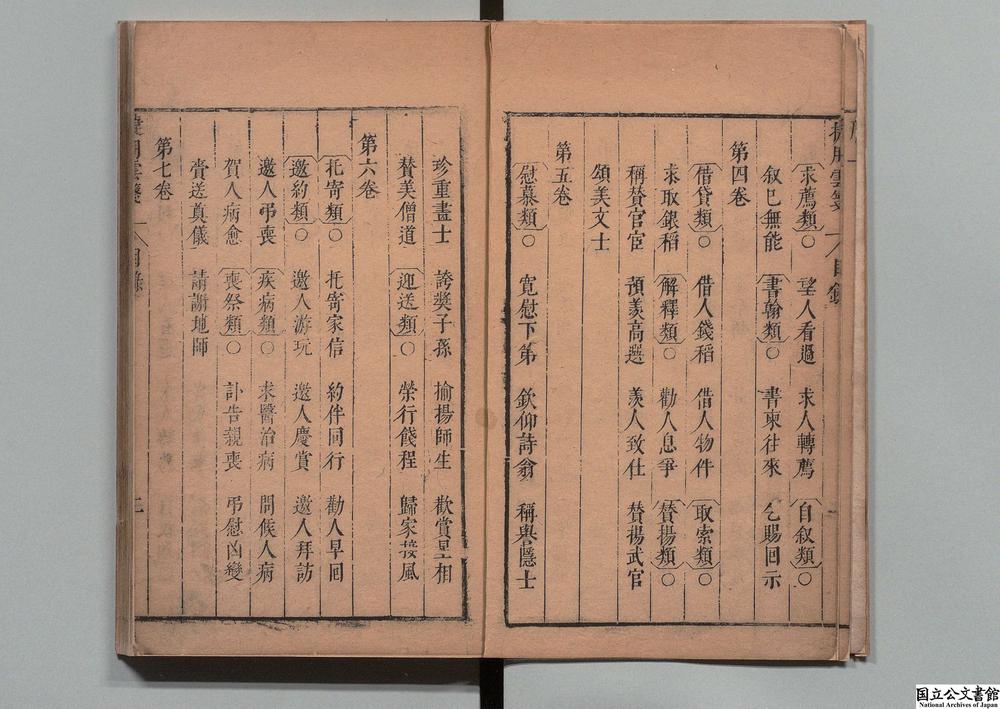 求薦類○　望人看過　求人轉薦　自叙類○
叙己無能　書翰類○　書柬往來　乞賜回示
第四卷
借貸類○　借人錢稻　借人物件　取索類○
求取銀稻　解釋類○　勸人息爭　賛揚類○
稱賛官宦　預羡高選　羡人致仕　賛揚武官
頌美文士
第五卷
慰慕類○　寛慰下第　欽仰詩翁　稱與隱士
珍重畫士　誇奬子孫　揄揚師生　歡賞星相
賛美僧道　迎送類○　榮行餞程　歸家接風
第六卷
托寄類○　托寄家信　約伴同行　勸人早回
邀約類○　邀人游玩　邀人慶賞　邀人拜訪
邀人弔喪　疾病類○　求醫治病　問候人病
賀人病愈　喪祭類○　訃告親喪　弔慰凶變
賫送奠儀　請謝地師
第七卷
目錄
二
国立公文書館
National Archives of Japan